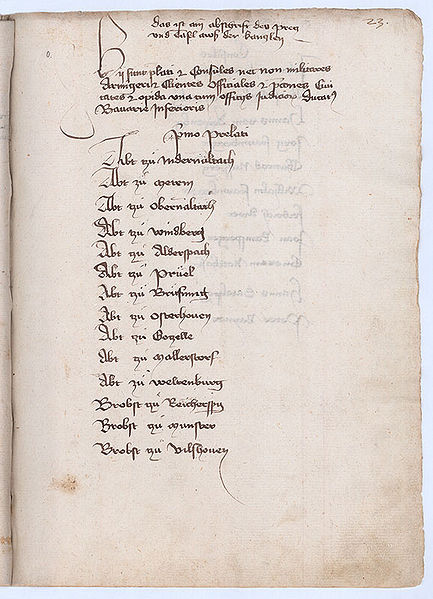 23.
das ist ain abschrift des preg
und tafl aws der kanzley
Hii sunt plati & Consules nec non militares
Armigeri & Clientes Officiales & pcones Civi
tates & opida una cum officijs Judicior Ducat9
Bavarie Inferioris
Pmo Prelati
Abt zu Nidernaltach
Abt zu Metem
Abt zu Obernaltach
Abt zu Windberg
Abt zu Alderspach
Abt zu Prüel
Abt zu Brüfning
Abt zu Osterhoven
Abt zu Gotzelle
Abt zu Mallerstorf
Abt zu Weltenburg
Brobst zu Reicherspn
Brobst zu Munster
Brobst zu Vilshoven